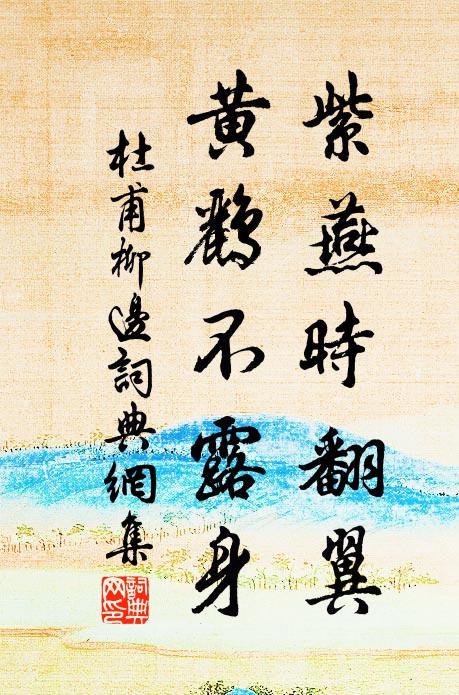 紫燕時翻翼
黄鸝不露身
杜甫柳邊詞典網集
詞典
网印